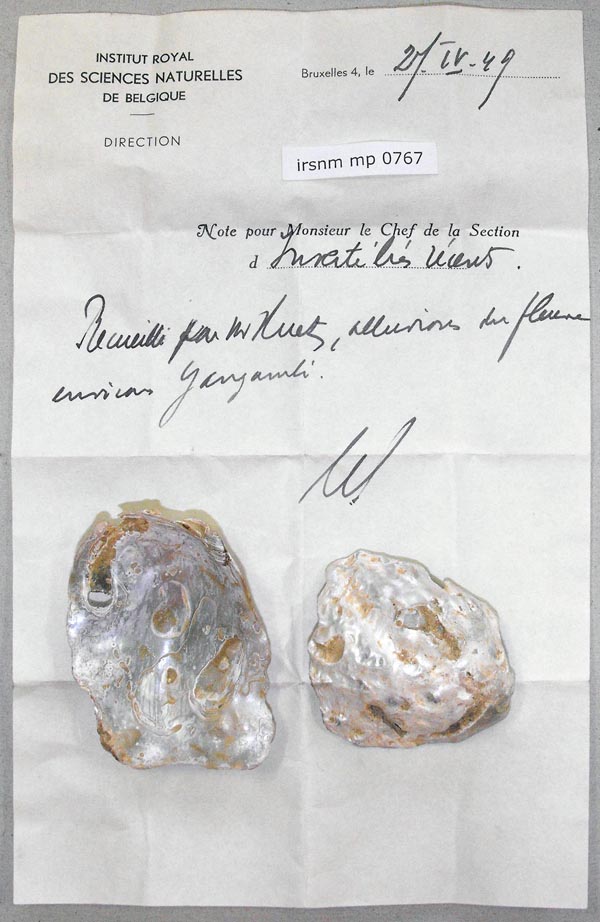 INSTITUT ROYAL
DES SCIENCES NATURELLES
DE BELGIQUE
DIRECTION
Bruxelles 4, le 27. IV. 49
irsnm mp 0767
Note pour Monsieur le Chef de la Section
d Invertébrés récents.
Recueilli par Mr Huet, alluvions du fleuve
environs Yangambi.